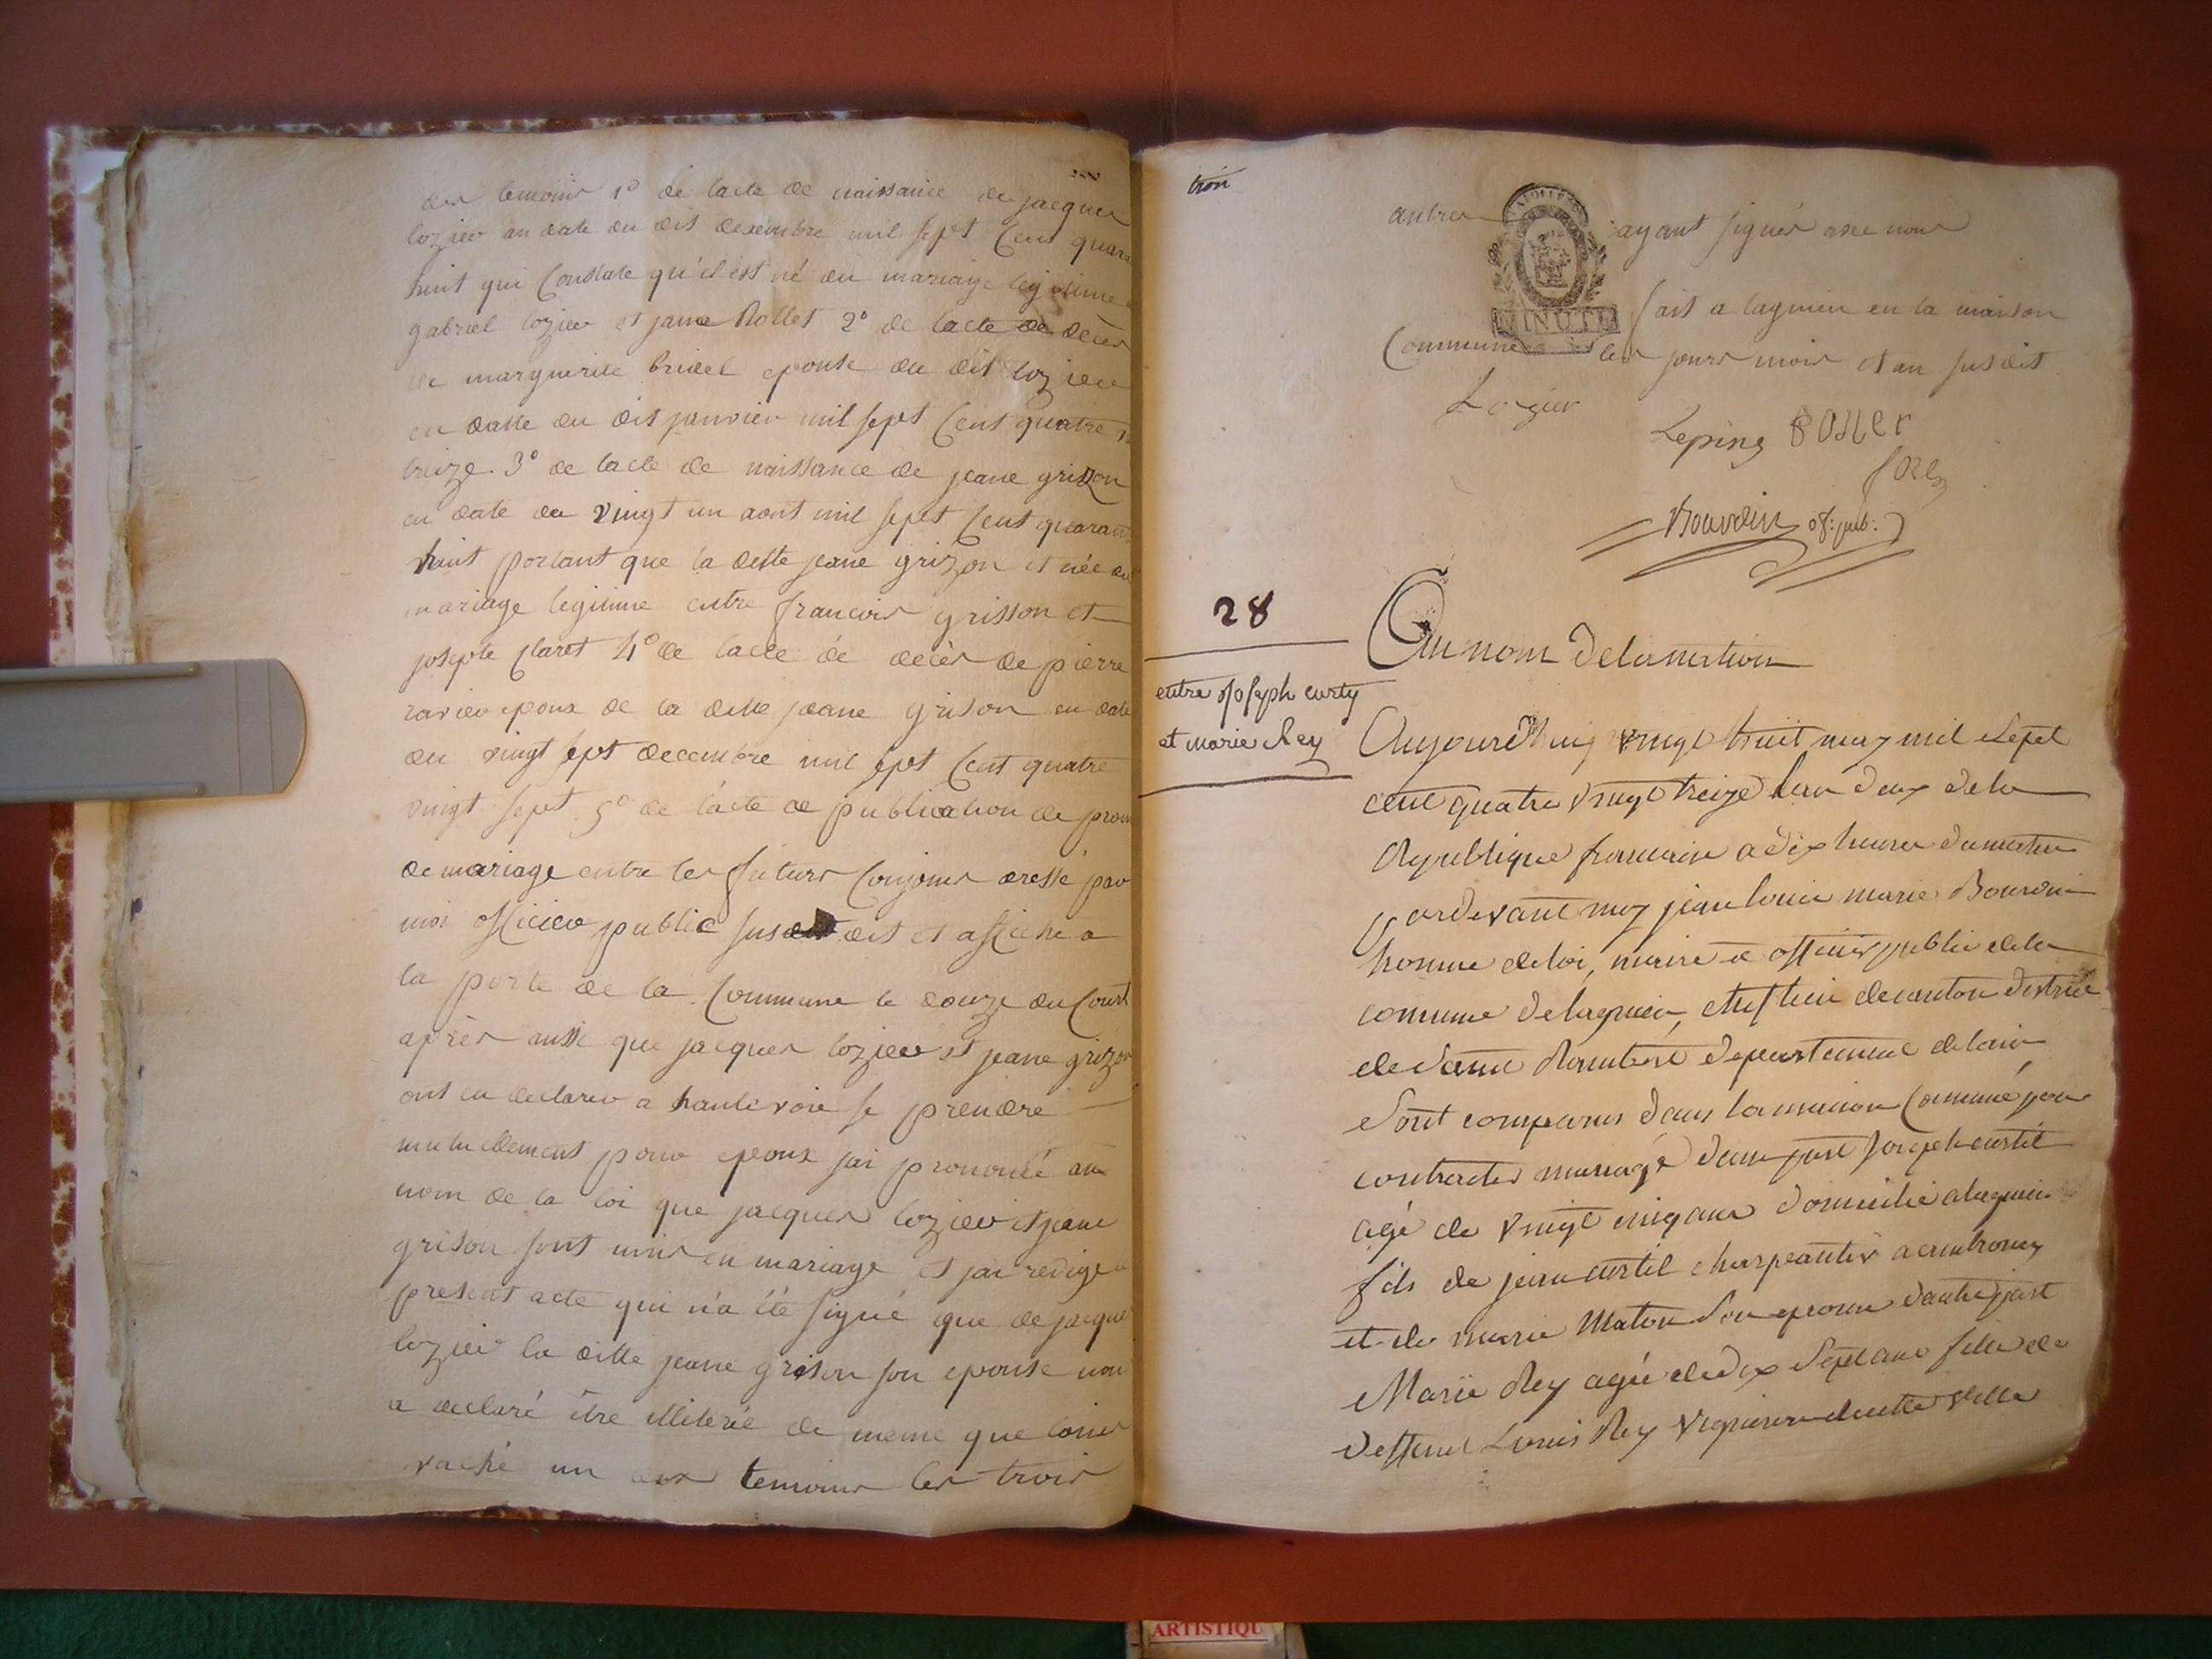 des temoins 1° de lacte de naissance de jacques
lozier an date du dis decembre mil sept cent quara
huit qui constate qu'il est né du mariage legitime
gabriel lozier et jane Rollet 2° de lacte de déces
de marguerite bridel epouse du dit lozier
en datte du dis janvier mil sept cent quatre
treize. 3° de lacte de naissance de jeane grizon
en date du vingt un aout mil sept cent quarant
huit portant que la ditte jeane grizon et née du
mariage legitime entre francois grisson et
josepte claret 4° de lacte de decès de pierre
ravier epoux de la ditte jeane grison en date
du vingt sept decembre mil sept cent quatre
vingt sept. 5° de l'acte de publication de prom
de mariage entre les futurs conjoins dressé par
moi officier public susdit et affiché a
la porte de la commune le douze du court
après aussi que jacques lozier et jeane grizon
ont eu declarer a haute voix se prendre
mutuellement pour epoux jai prononcé au
nom de la loi que jacques lozier et jeane
grison sont unis en mariage et jai redigé le
present acte qui n'a été signé que de jacque
lozier la ditte jeane grison son epouse nous
a declaré être illiterée de meme que louis
vaché un des temoins les trois
trois
autres ayant signés avec nous
MINUTE
fait a lagnieu en la maison
Commune les jours mois et an susdit
Lozier
Lepine BOSSER
Bourdin of: pub:
28
entre Joseph curty
et marie Rey
Au nom de la nation
Aujourd'huy vingt huit may mil sept
cent quatre vingt treize l'an deux de la
Republique francaise a dix heures du matin
pardevant moy jean louis marie Bourdin
homme de loi, maire et officier public de la
comune de lagnieu, chef lieu de canton district
de Saint Rambert departement de lain
Sont comparus dans la maison Commune pour
contracter mariage d'une part Joseph curtil
agé de vingt cinq ans domicilié a lagnieu
fils de jean curtil charpantier a ambronay
et de marie Maton son epouse d'autre part
Marie Rey agée de dix Sept ans fille de
deffunt Louis Rey vigneron de cette ville